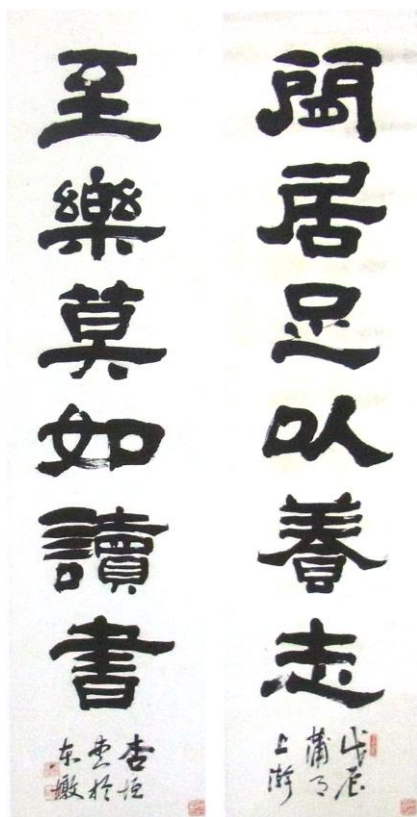 閒居足以養志
戊辰
蒲月
上澣
至樂莫如讀書
杏垣
書於
东墩